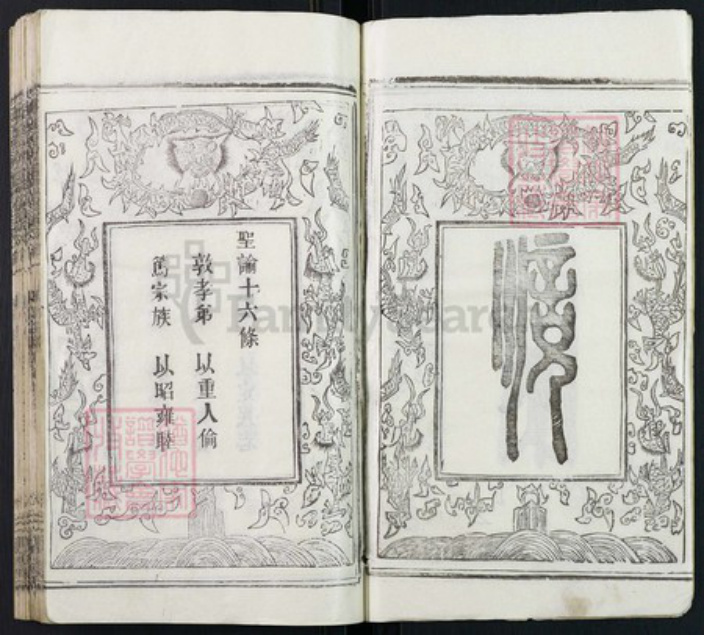 聖諭十六條
敦孝弟 以重人倫
篤宗族 以昭雍睦
FamilySearch